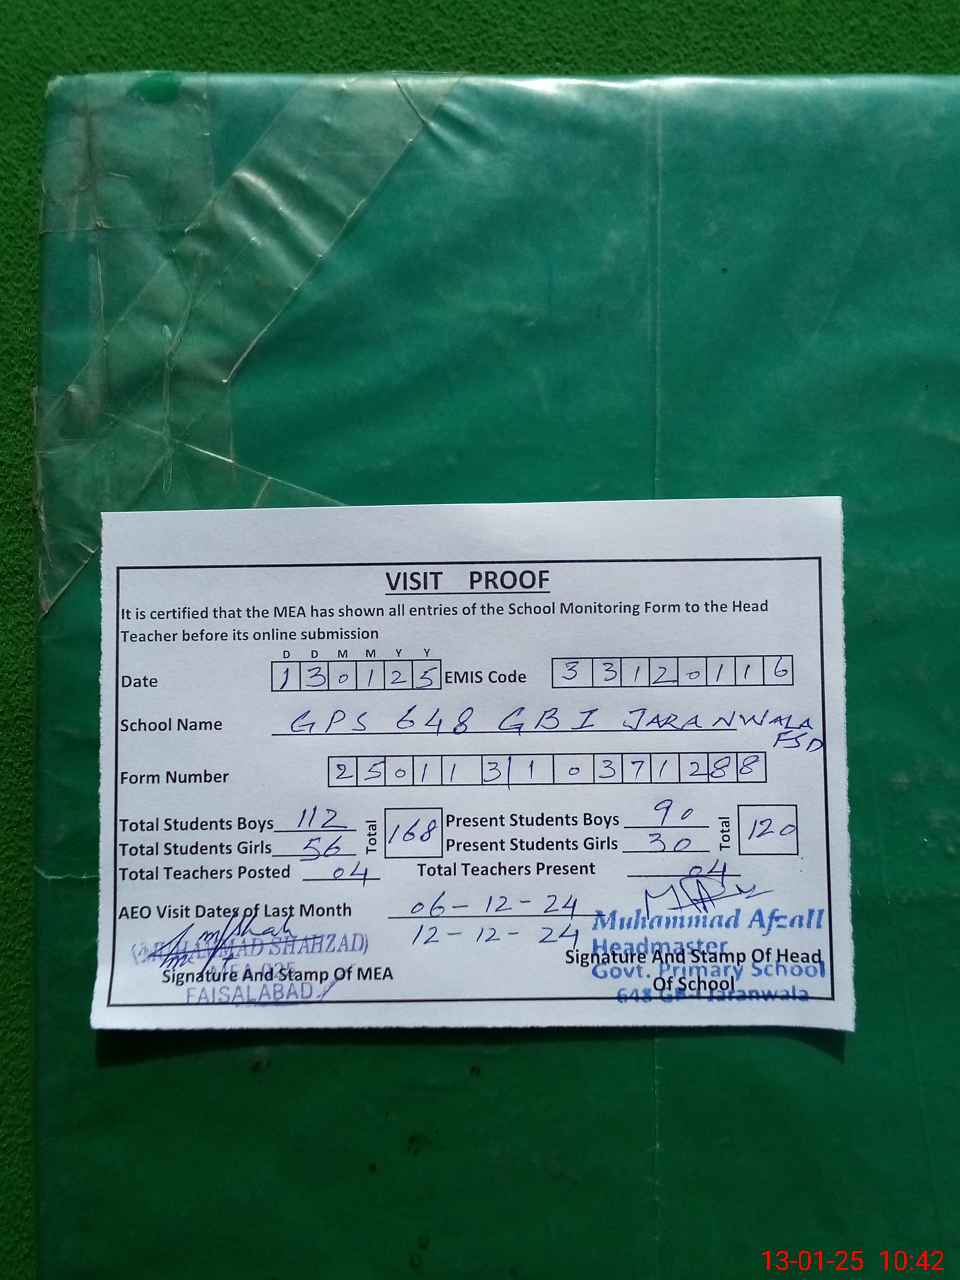 VISIT PROOF
It is certified that the MEA has shown all entries of the School Monitoring Form to the Head
Teacher before its online submission
D D M M Y Y
Date 130125 EMIS Code 33120116
School Name GPS 648 GB I JARANWALA
FSD
Form Number 25011310371288
Total Students Boys 112 Total 168 Present Students Boys 90 Total 120
Total Students Girls 56 Present Students Girls 30
Total Teachers Posted 04 Total Teachers Present 04
AEO Visit Dates of Last Month 06-12-24
12-12-24
Muhammad Afzall
(MUHAMMAD SHAHZAD) Headmaster
Signature And Stamp Of MEA Signature And Stamp Of Head
Govt. Primary School
FAISALABAD Of School
648 GB Jaranwala
13-01-25 10:42